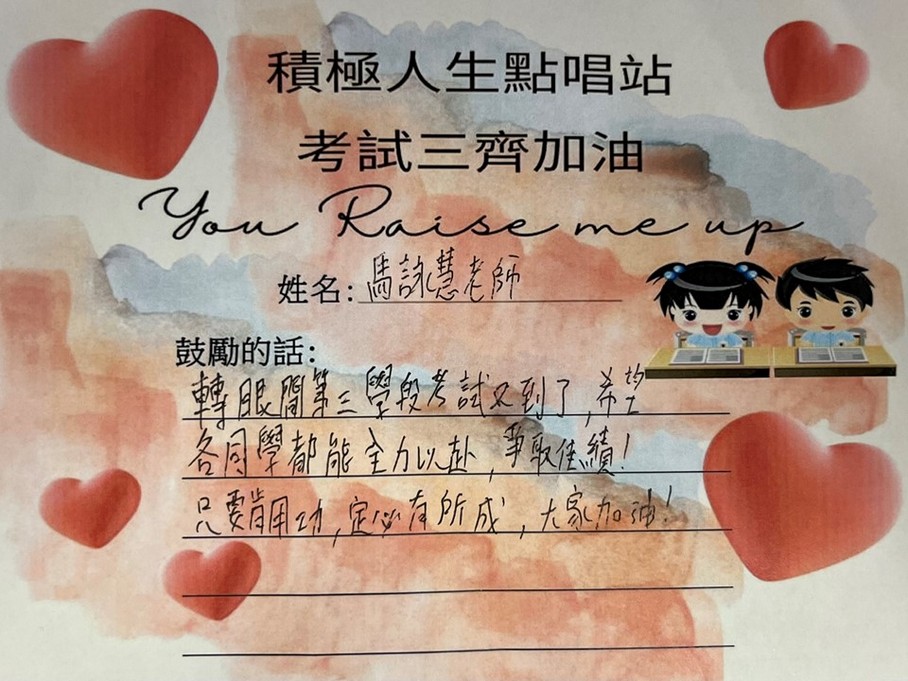 積極人生點唱站
考試三齊加油
You Raise me up
姓名：馮詠慧老師
鼓勵的話：
轉眼間第三學段考試又到了，希望
各同學都能全力以赴，爭取佳績！
只要肯用功，定必有所成，大家加油！